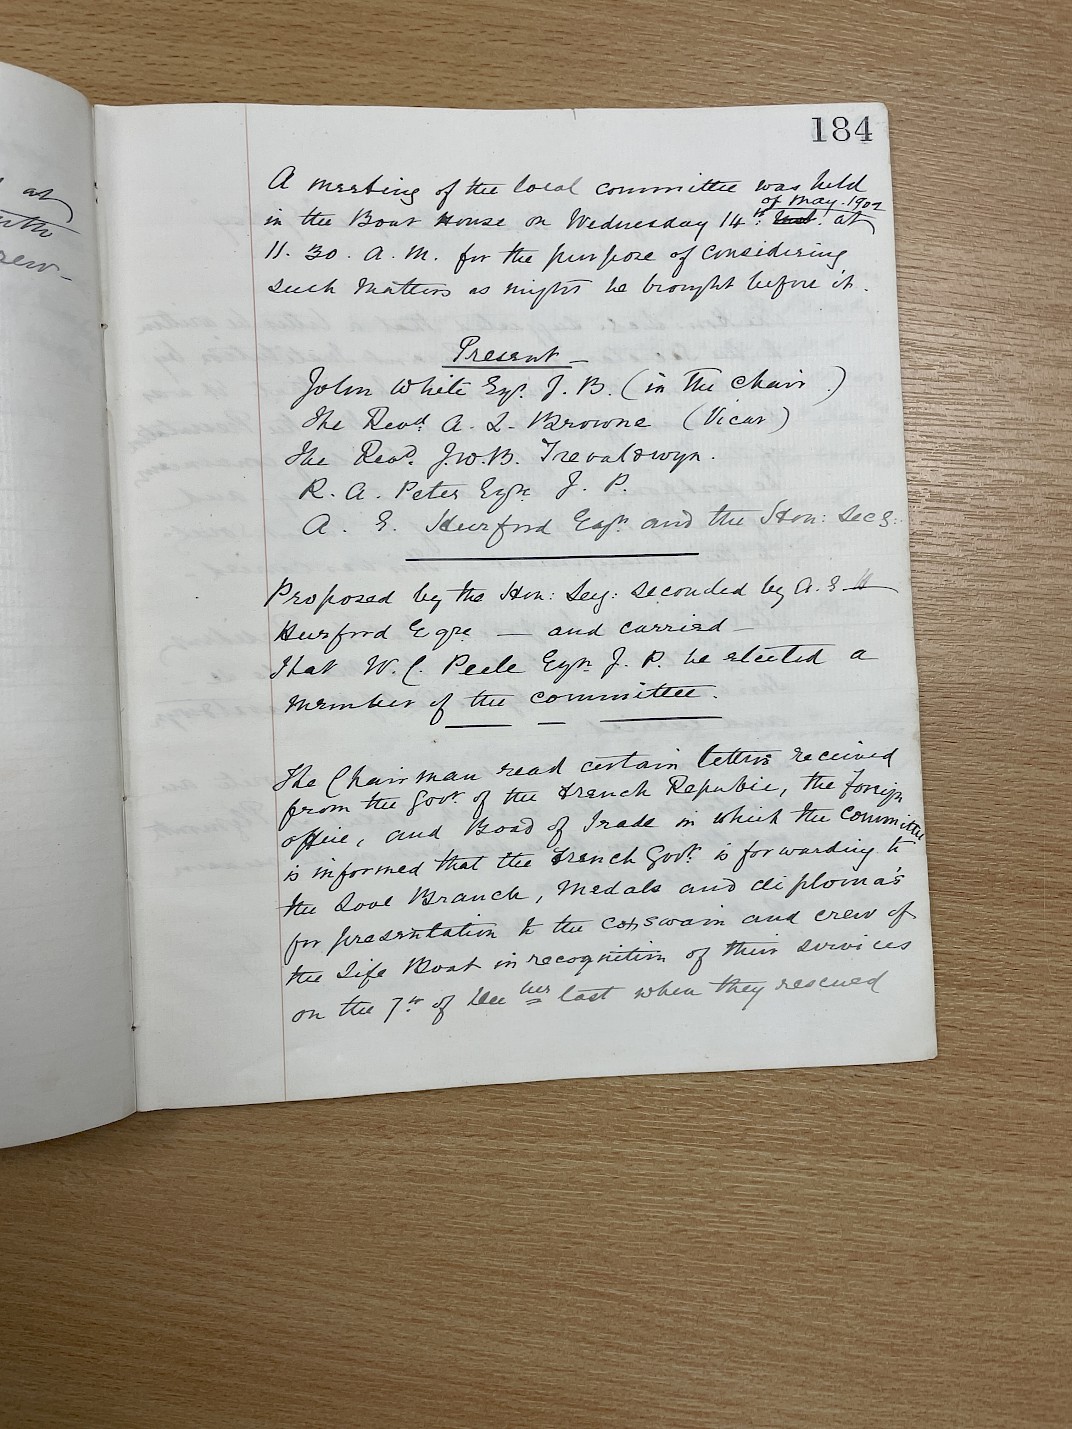 184
at
A meeting of the local committee was held
of may. 1902
in the Boat House on Wednesday 14th Inst. at
11. 30. A. M. for the purpose of considering
such matters as might be brought before it.
Present —
John White Esqr. J. P. (in the chair.)
The Revd. A. L. Browne (Vicar)
The Revd. J. W. B. Trevaldwyn.
R. A. Peter Esqr. J. P.
A. E. Hurford Esqr. and the Hon: Secy:
Proposed by the Hon: Secy: seconded by A. E. H
Hurford Esqre — and carried —
That W. C. Peele Esqr. J. P. be elected a
member of the committee.
The Chairman read certain letters received
from the Govt. of the French Republic, the foreign
office, and Boad of Trade in which the committee
is informed that the French Govt. is forwarding to
the Looe Branch, Medals and diploma's
for presentation to the coxswain and crew of
the Life Boat in recognition of their services
on the 7th of Decber last when they rescued